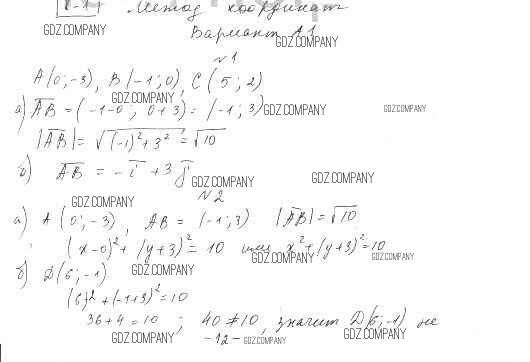 К-1 Метод координат
GDZ.COMPANY
Вариант А1
GDZ.COMPANY
№1
A(0;-3), B(-1;0), C(5;2)
GDZ.COMPANY GDZ.COMPANY
а) AB = (-1-0; 0+3) = (-1; 3) GDZ.COMPANY GDZ.COMPANY
|AB| = √(-1)²+3² = √10
б) AB = -i + 3j
GDZ.COMPANY GDZ.COMPANY
№2
GDZ.COMPANY
а) A(0;-3), AB = (-1;3) |AB| = √10
GDZ.COMPANY
(x-0)² + (y+3)² = 10 или x² + (y+3)² = 10
GDZ.COMPANY GDZ.COMPANY
б) D(6;-1) GDZ.COMPANY
(6)² + (-1+3)² = 10
36+4 = 10; 40 ≠ 10, значит D(6;-1) не
GDZ.COMPANY -12- GDZ.COMPANY GDZ.COMPANY